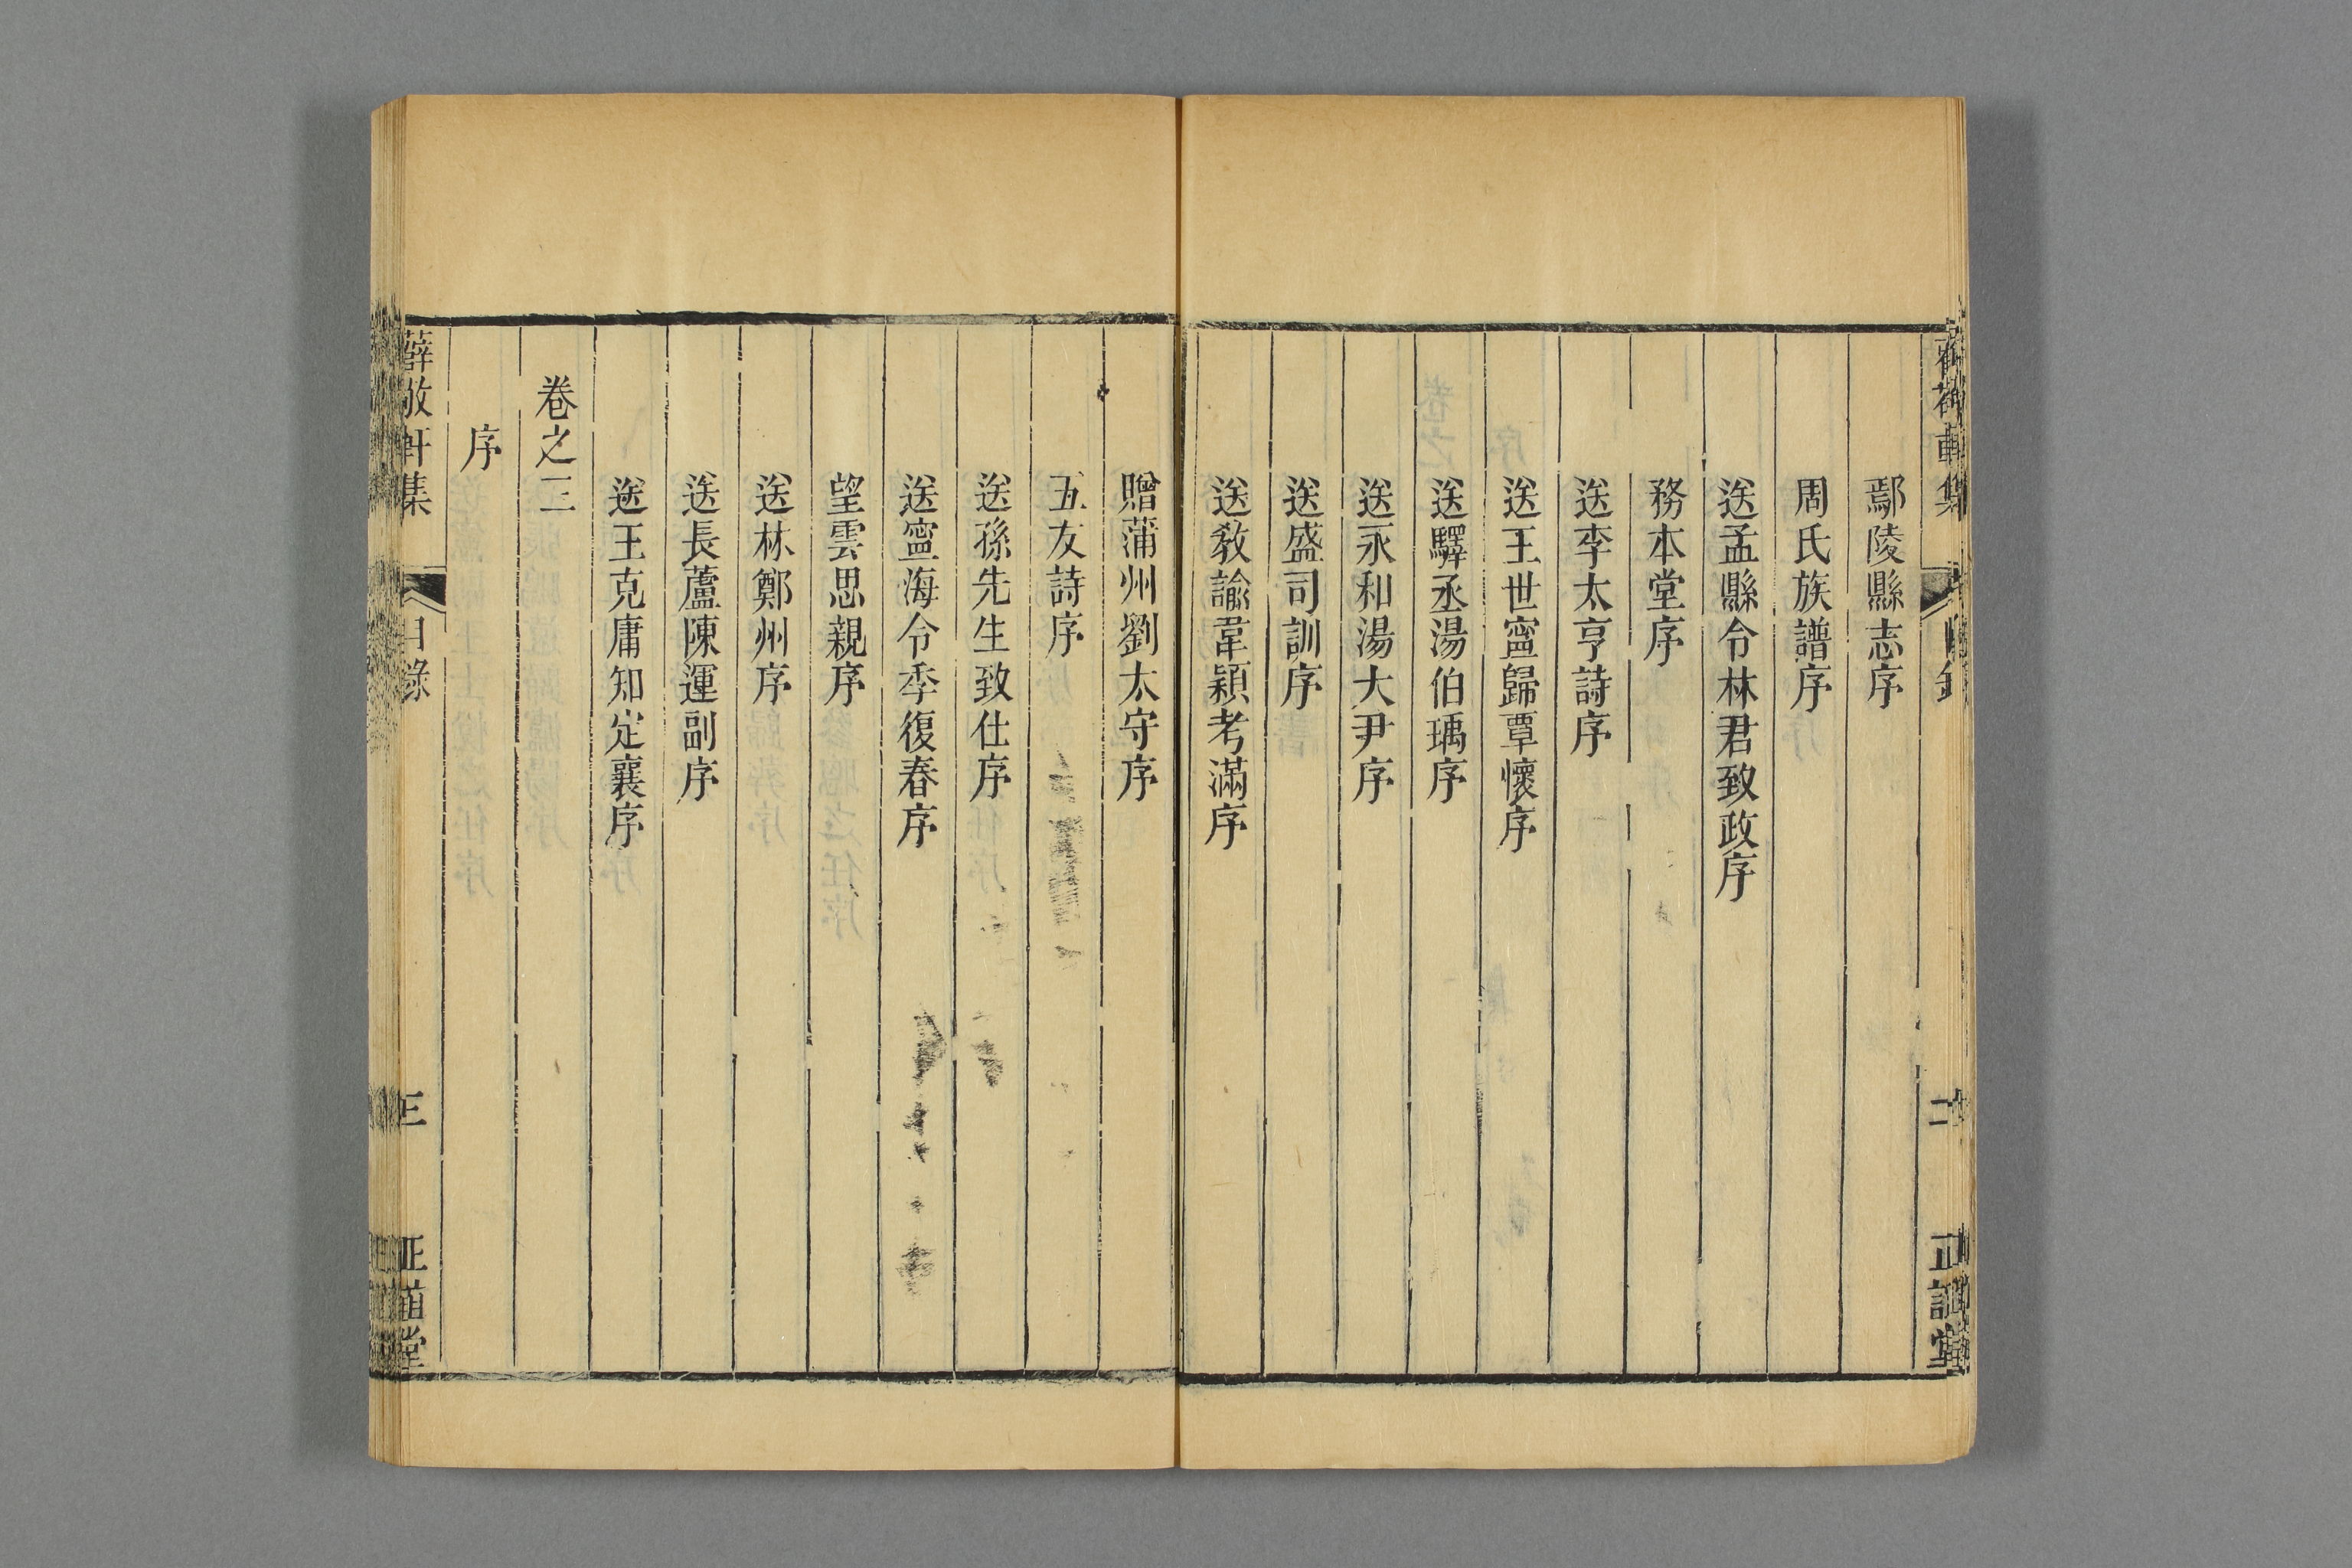 鄢陵縣志序
周氏族譜序
送孟縣令林君致政序
務本堂序
送李太亨詩序
送王世寧歸覃懷序
送驛丞湯伯瑀序
送永和湯大尹序
送盛司訓序
送教諭韋穎考滿序
贈蒲州劉太守序
五友詩序
送孫先生致仕序
送寧海令季復春序
望雲思親序
送林鄭州序
送長蘆陳運副序
送王克庸知定襄序
卷之三
序
薛敬軒集
目錄
三
正誼堂